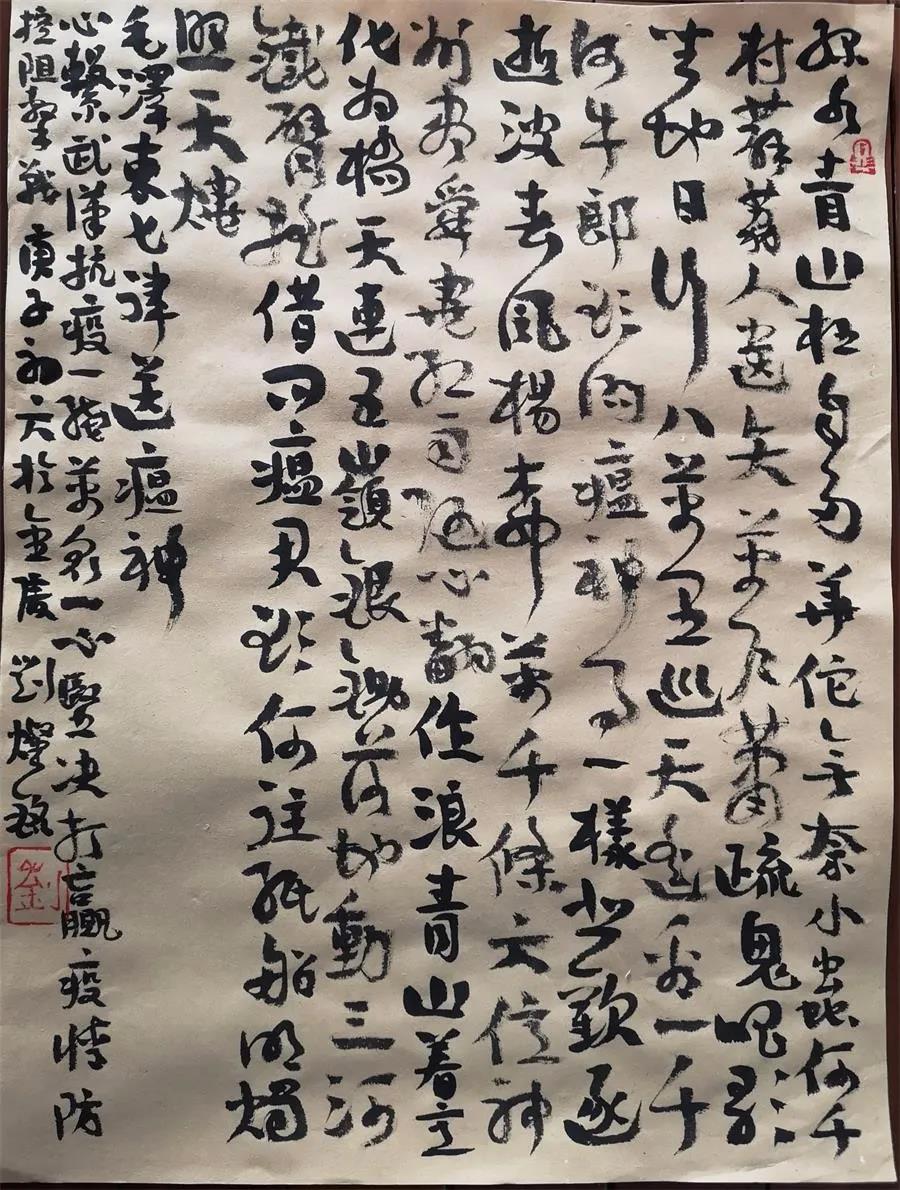 綠水青山枉自多華佗無奈小蟲何千
村薜荔人遺矢萬戶蕭疏鬼唱歌
坐地日行八萬里巡天遙看一千
河牛郎欲問瘟神事一樣悲歡逐
逝波春風楊柳萬千條六億神
州盡舜堯紅雨隨心翻作浪青山着意
化為橋天連五嶺銀鋤落地動三河
鐵臂搖借問瘟君欲何往紙船明燭
照天燒
毛澤東七律送瘟神
心繫武漢抗疫一線萬眾一心堅決打贏疫情防
控阻擊戰庚子初六於金陵劉燦銘